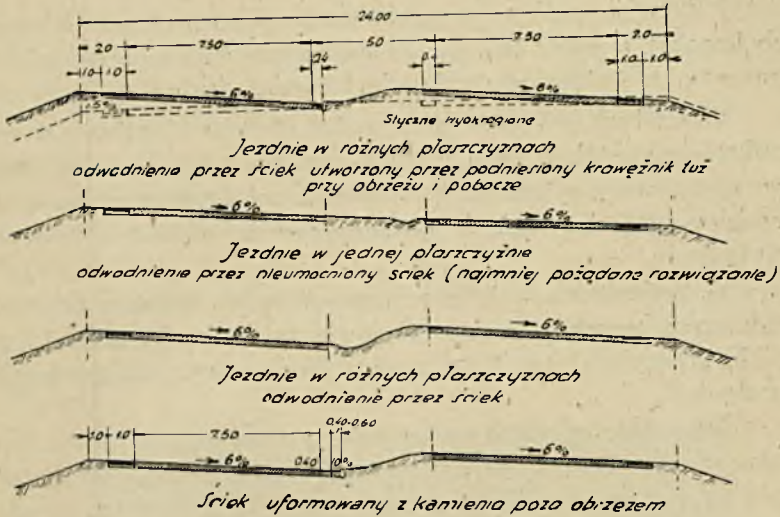 24.00
2.0 7.50 5.0 7.50 2.0
1.0 1.0 0.4 0.4 1.0 1.0
6% 6%
Styczne wyokrąglone
Jezdnie w różnych płaszczyznach
odwodnienie przez ściek utworzony przez podniesiony krawężnik tuż
przy obrzeżu i pobocze
6% 6%
Jezdnie w jednej płaszczyźnie
odwodnienie przez nieumocniony ściek (najmniej pożądane rozwiązanie)
6% 6%
Jezdnie w różnych płaszczyznach
odwodnienie przez ściek
0.40-0.60
1.0 1.0 7.50
6% 0.40 10% 6%
Ściek uformowany z kamienia poza obrzeżem